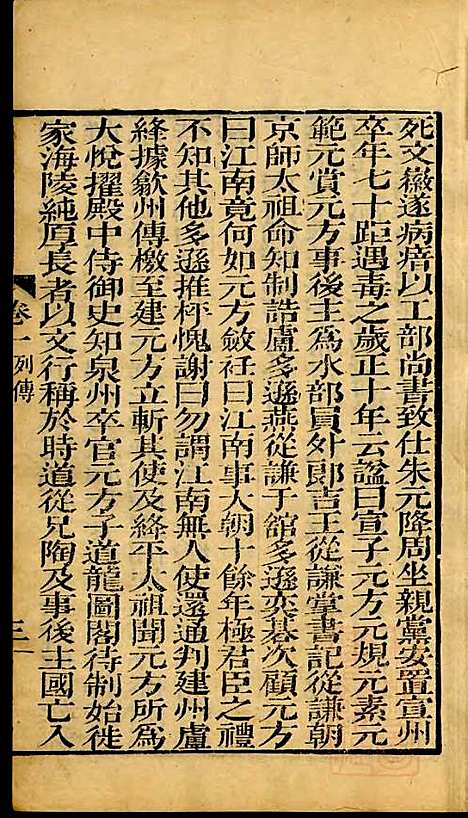 死文徽遂病瘖以工部尚書致仕朱元降周坐親黨安置宣州
卒年七十距遇毒之歲正十年云謚曰宣子元方元規元素元
範元賞元方事後主爲水部員外郎吉王從謙掌書記從謙朝
京師太祖命知制誥盧多遜燕從謙于舘多遜奕棊次顧元方
曰江南竟何如元方斂衽曰江南事大朝十餘年極君臣之禮
不知其他多遜推枰愧謝曰勿謂江南無人使還通判建州盧
絳據歙州傳檄至建元方立斬其使及絳平太祖聞元方所爲
大悅擢殿中侍御史知泉州卒官元方子道龍圖閣待制始徙
家海陵純厚長者以文行稱於時道從兄陶及事後主國亡入
卷一列傳
三